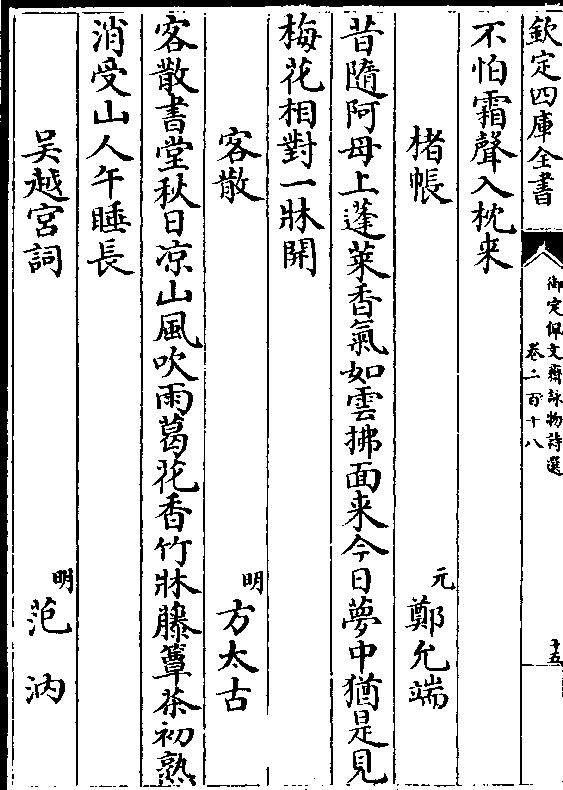 欽定四庫全書
御定佩文齋詠物詩選
卷二百十八
十五
不怕霜聲入枕来
楮帳
元
鄭允端
昔隨阿母上蓬萊香氣如雲拂面来今日夢中猶是見
梅花相對一牀開
客散
明
方太古
客散書堂秋日凉山風吹雨葛花香竹牀藤簟茶初熟
消受山人午睡長
吴越宮詞
明
范汭